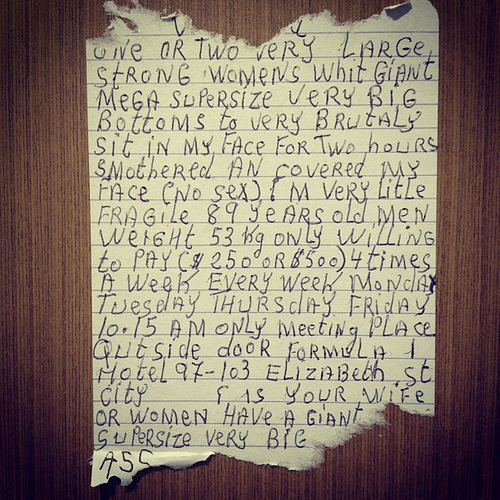 ONE OR TWO VERY LARGE
STRONG WOMENS WHIT GIANT
MEGA SUPERSIZE VERY BIG
BOTTOMS to VERY BRUTALY
SIT IN MY FACE FOR TWO HOURS
SMOTHERED AN COVERED MY
FACE (NO SEX) I'M VERY LITLE
FRAGILE 89 YEARS OLD MEN
WEIGHT 53 kg ONLY WILLING
to PAY ($ 250 OR $500) 4 times
A WEEK EVERY WEEK MONDAY
TUESDAY THURSDAY FRIDAY
10.15 AM ONLY MEETING PLACE
OUTSIDE DOOR FORMULA 1
HOTEL 97-103 ELIZABETH St
CITY IS YOUR WIFE
OR WOMEN HAVE A GIANT
SUPERSIZE VERY BIG
ASS